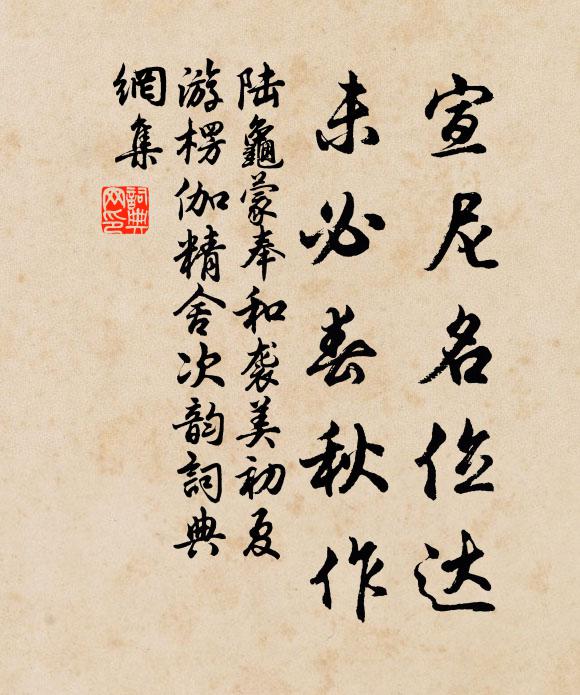 宣尼名位达
未必春秋作
陆龜蒙奉和袭美初夏
游楞伽精舍次韵詞典
網集
詞典
网印